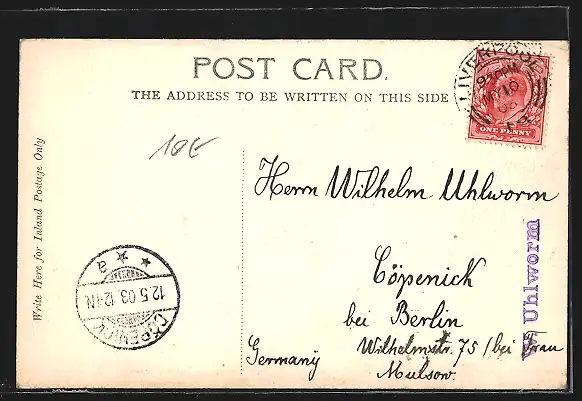 POST CARD.
THE ADDRESS TO BE WRITTEN ON THIS SIDE
LIVERPOOL
MY 10
03
ONE PENNY
18€
Write Here for Inland Postage Only
Herrn Wilhelm Uhlworm
Cöpenick
bei Berlin
Wilhelmstr. 75 / bei Frau
Mulsow.
Germany
W. Uhlworm
CÖPENICK
12.5.03.12-1N
a